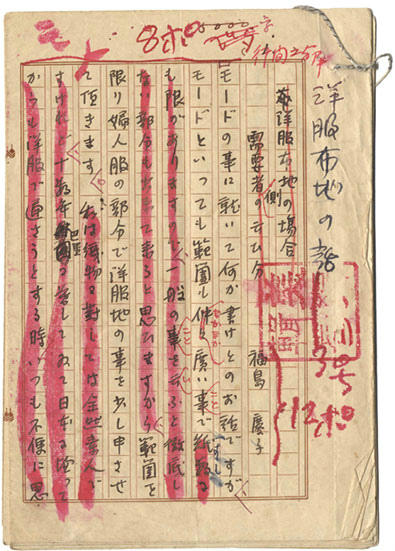 洋服布地の話
洋服布地の場合
需要者側の云ひ分
福島慶子
モードの事に就いて何か書けとのお話ですが
モードといっても範囲も仲々広い事で紙数に
も限がありますので、一般の事を云ふと徹底し
ない部分も出て来ると思ひますから範囲を
限り婦人服の部分で洋服地の事を少し申させ
て頂きます。私は織物に対しては全然素人で
すけれど十数年巴里で暮して居て日本に帰って
からも洋服で通さうとする時いつも不便に思
8ポ
5000字
行間2分
3号
12ポ